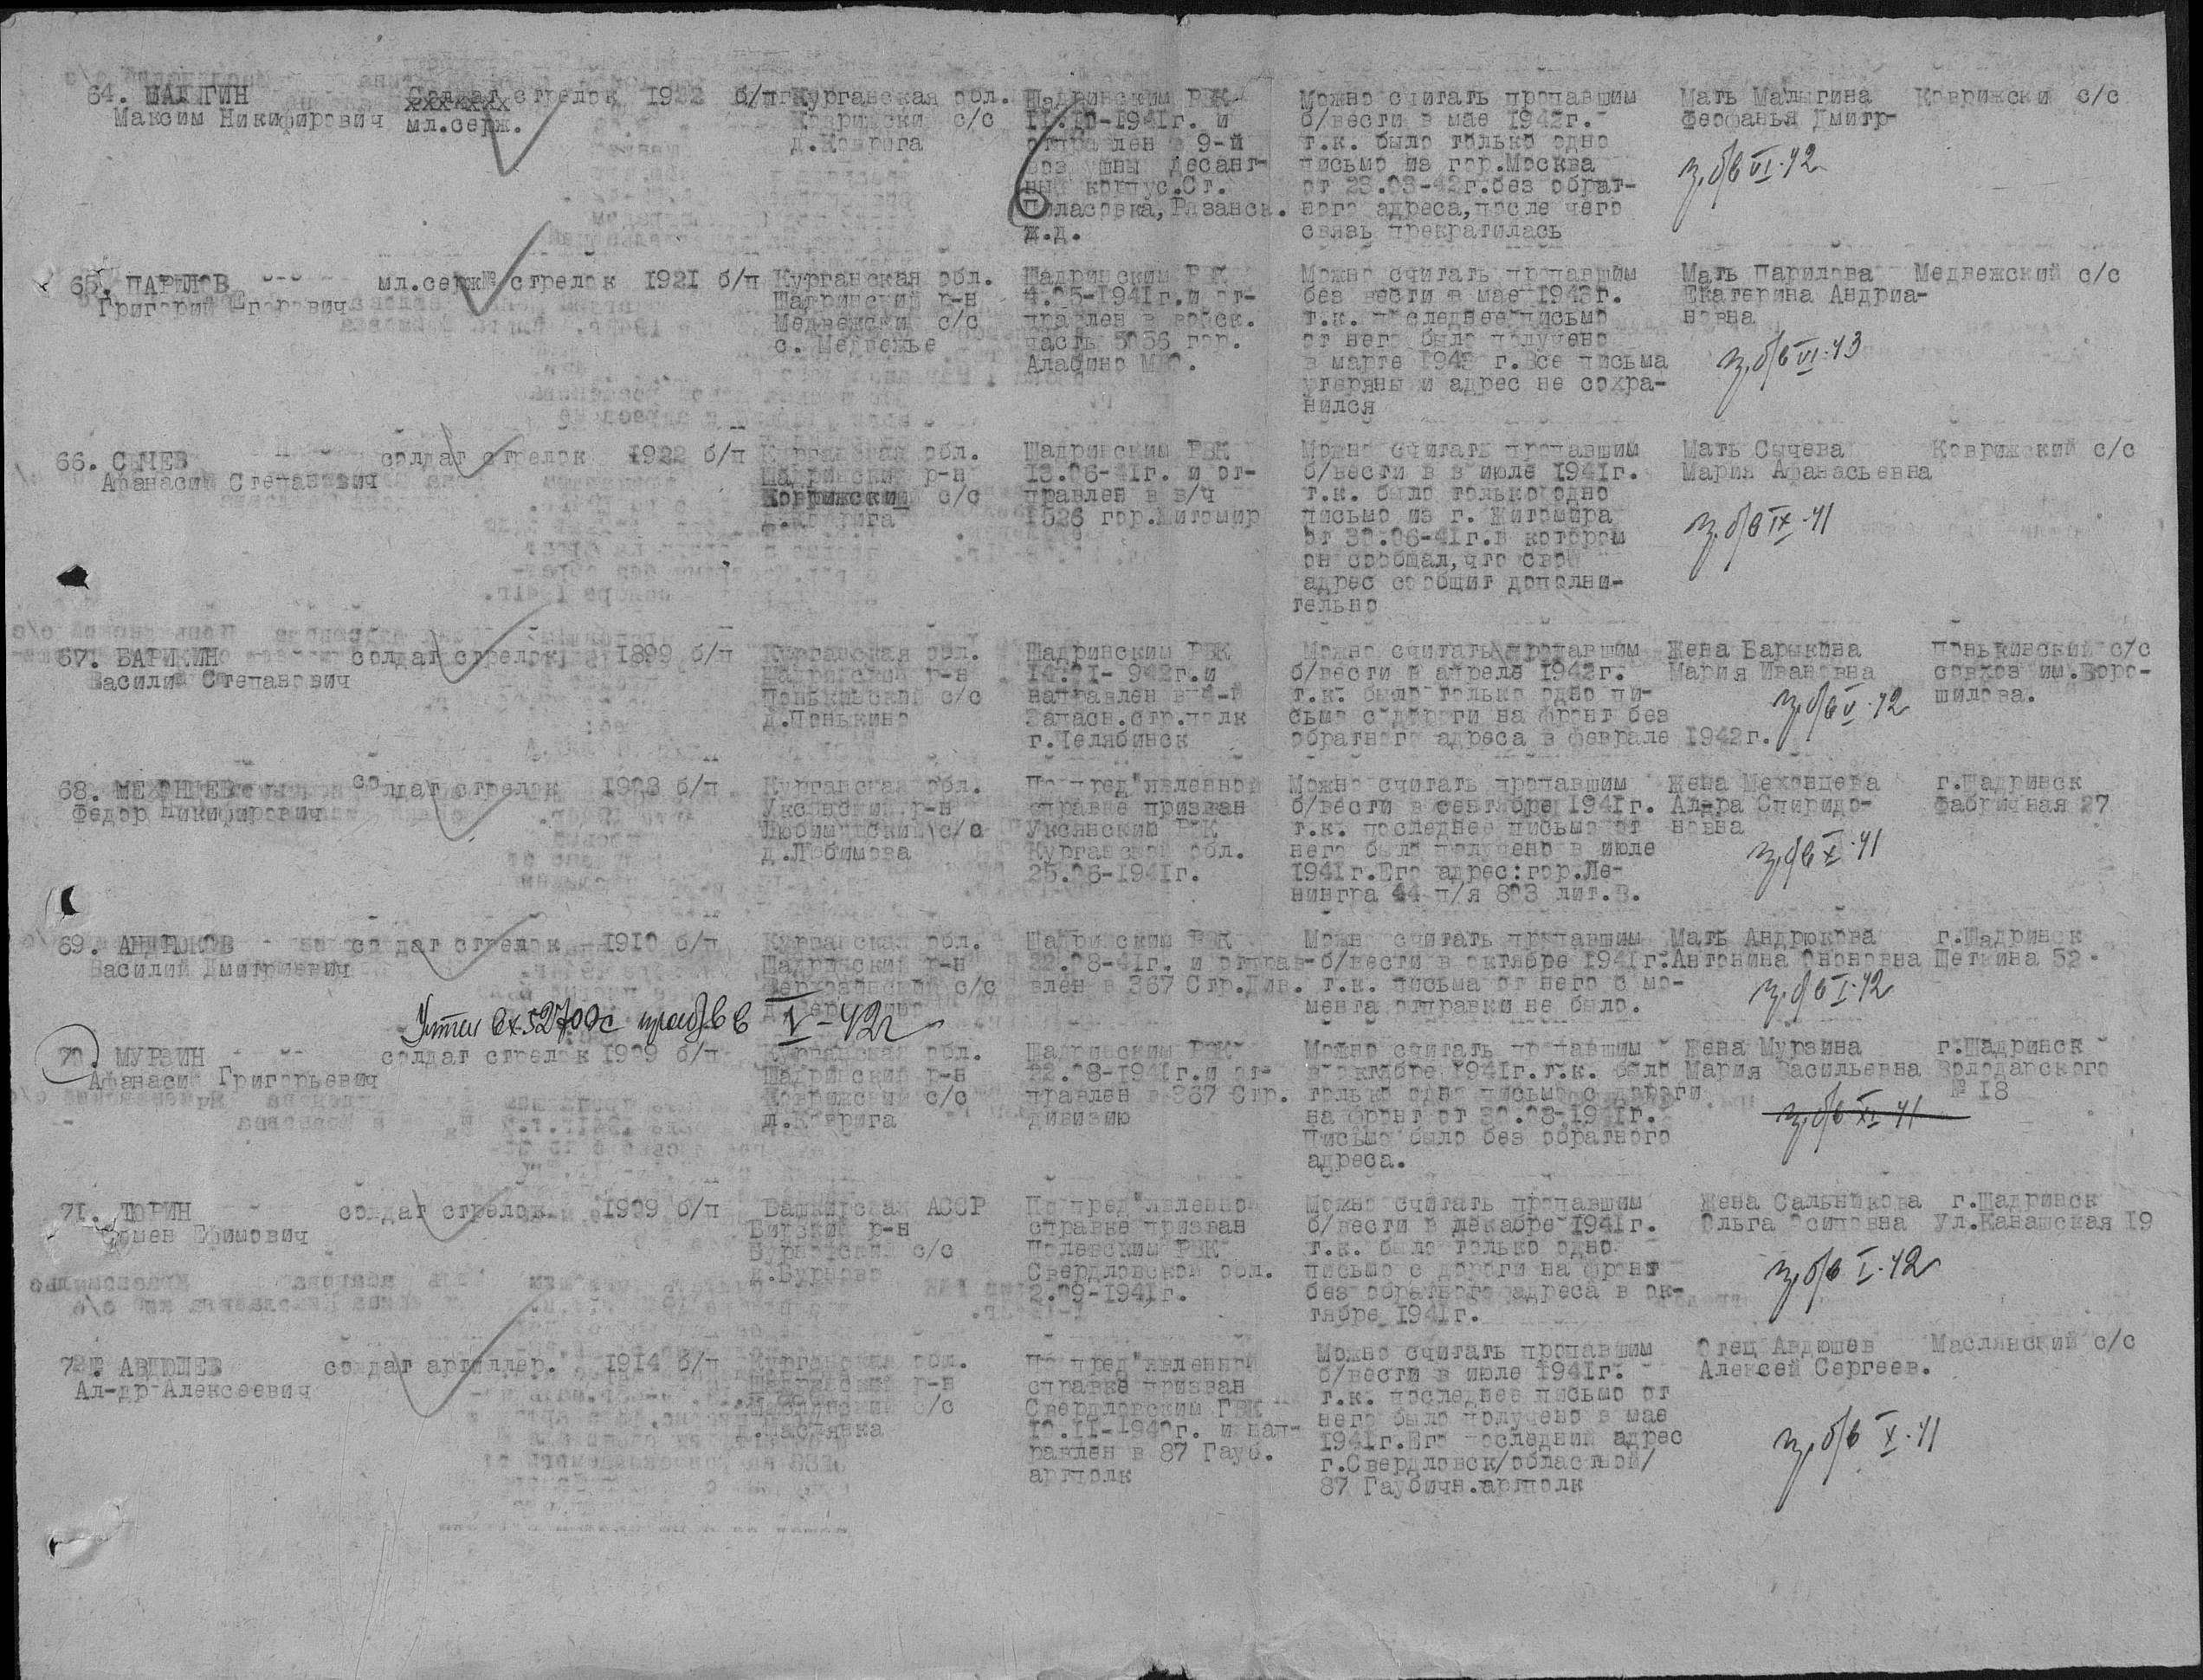 64. МАЛЫГИН
Максим Никифирович
Солдат стрелок 1922 б/п
мл.серж.
Курганская обл.
Коврижски с/с
д.Коврига
Шадринским РВК
11.10-1941г. и
отправлен в 9-й
воздушны десант-
ный корпус.Ст.
ж.д.
Можно считать пропавшим
б/вести в мае 1942г.
т.к. было только одно
письмо из гор.Москва
от 23.03-42г.без обрат-
ного адреса,после чего
связь прекратилась
Мать Малыгина
Феофанья Дмитр-
Коврижски с/с
б/в VI-42
65. ПАРИЛОВ
Григорий Егорович
мл.серж. стрелок 1921 б/п
Курганская обл.
Шадринский р-н
Медвежски с/с
с. Медвежье
Шадринским РВК
4.05-1941г.и от-
правлен в войск.
часть 5036 гор.
Алабино МВО.
Можно считать пропавшим
без вести в мае 1943г.
т.к. последнее письмо
от него было получено
в марте 1943 г.Все письма
утеряны и адрес не сохра-
нился
Мать Парилова
Екатерина Андриа-
новна
Медвежский с/с
б/в VI-43
66. СЫЧЕВ
Афанасий Степанович
солдат стрелок 1922 б/п
Курганская обл.
Шадринский р-н
Коврижский с/с
д.Коврига
Шадринским РВК
13.06-41г. и от-
правлен в в/ч
1526 гор.Житомир
Можно считать пропавшим
б/вести в в июле 1941г.
т.к. было только одно
письмо из г. Житомира
от 30.06-41г.в котором
он сообщал,что свой
адрес сообщит дополни-
тельно
Мать Сычева
Мария Афанасьевна
Коврижский с/с
б/в IX-41
67. БАРЫКИН
Василий Степанович
солдат стрелок 1899 б/п
Курганская обл.
Шадринский р-н
Понькинский с/с
д.Понькино
Шадринским РВК
14.01- 942г.и
направлен в 4-й
Запасн.стр.полк
г.Челябинск
Можно считать пропавшим
б/вести в апреле 1942г.
т.к. было только одно пи-
сьмо с дороги на фронт без
обратного адреса в феврале 1942г.
Жена Барыкина
Мария Ивановна
Понькинский с/с
совхоз им.Воро-
шилова.
б/в V-42
68. МЕХОНЦЕВ
Федор Никифирович
солдат стрелок 1903 б/п
Курганская обл.
Уксянский р-н
Любимовский с/с
д.Любимова
По пред"явленной
справке призван
Уксянским РВК
Курганской обл.
25.06-1941г.
Можно считать пропавшим
б/вести в сентябре 1941г.
т.к. последнее письмо от
него было получено в июле
1941г.Его адрес:гор.Ле-
нингра 44 п/я 803 лит.В.
Жена Мехонцева
Ал-ра Спиридо-
новна
г.Шадринск
Фабричная 27
б/в X-41
69. АНДРЮКОВ
Василий Дмитриевич
солдат стрелок 1910 б/п
Курганская обл.
Шадринский р-н
Шадринским РВК
22.08-41г. и отправ-
влен в 367 Стр.Див.
Можно считать пропавшим
б/вести в октябре 1941г.
т.к. письма от него с мо-
мента отправки не было.
Мать Андрюкова
Антонина Ононовна
г.Шадринск
Щеткина 52.
б/в I-42
V-42г
70. МУРЗИН
Афанасий Григорьевич
солдат стрелок 1909 б/п
Курганская обл.
Шадринский р-н
Коврижский с/с
д.Коврига
Шадринским РВК
22.08-1941г.и от-
правлен в 367 Стр.
дивизию
Можно считать пропавшим
в октябре 1941г.т.к. было
только одно письмо с дороги
на фронт от 30.08-1941г.
Письмо было без обратного
адреса.
Жена Мурзина
Мария Васильевна
г.Шадринск
Володарского
№ 18
б/в XI-41
71. ТЮРИН
солдат стрелок 1909 б/п
Ефимович
Башкирская АССР
Бирский р-н
По пред"явленной
справке призван
Полевским РВК
Свердловской обл.
2.09-1941г.
Можно считать пропавшим
б/вести в декабре 1941г.
т.к. было только одно
письмо с дороги на фронт
без обратного адреса в ок-
тябре 1941г.
Жена Сальникова
Ольга Осиповна
г.Шадринск
Ул.Канашская 19
б/в I-42
72. АВДЮШЕВ
Ал-др Алексеевич
солдат артиллер. 1914 б/п
Курганская обл.
Шадринский р-н
Маслянский с/с
Маслянка
По пред"явленной
справке призван
Свердловским ГВК
10.11-1940г. и нап-
равлен в 87 Гауб.
артполк
Можно считать пропавшим
б/вести в июле 1941г.
т.к. последнее письмо от
него было получено в мае
1941г.Его последний адрес
г.Свердловск/областной/
87 Гаубичн.артполк
Отец Авдюшев
Алексей Сергеев.
Маслянский с/с
б/в X-41